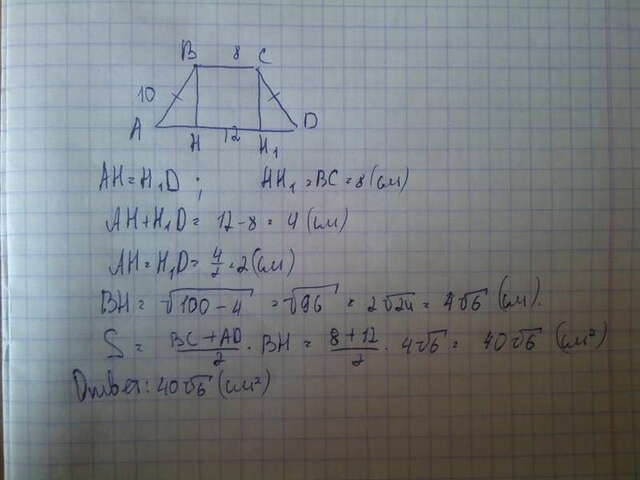 B 8 C
10
A H 12 H₁ D
AH = H₁D ; HH₁ = BC = 8 (см)
AH + H₁D = 12 - 8 = 4 (см)
AH = H₁D = 4/2 = 2 (см)
BH = √100 - 4 = √96 = 2√24 = 4√6 (см).
S = BC + AD/2 · BH = 8 + 12/2 · 4√6 = 40√6 (см²)
Ответ: 40√6 (см²)